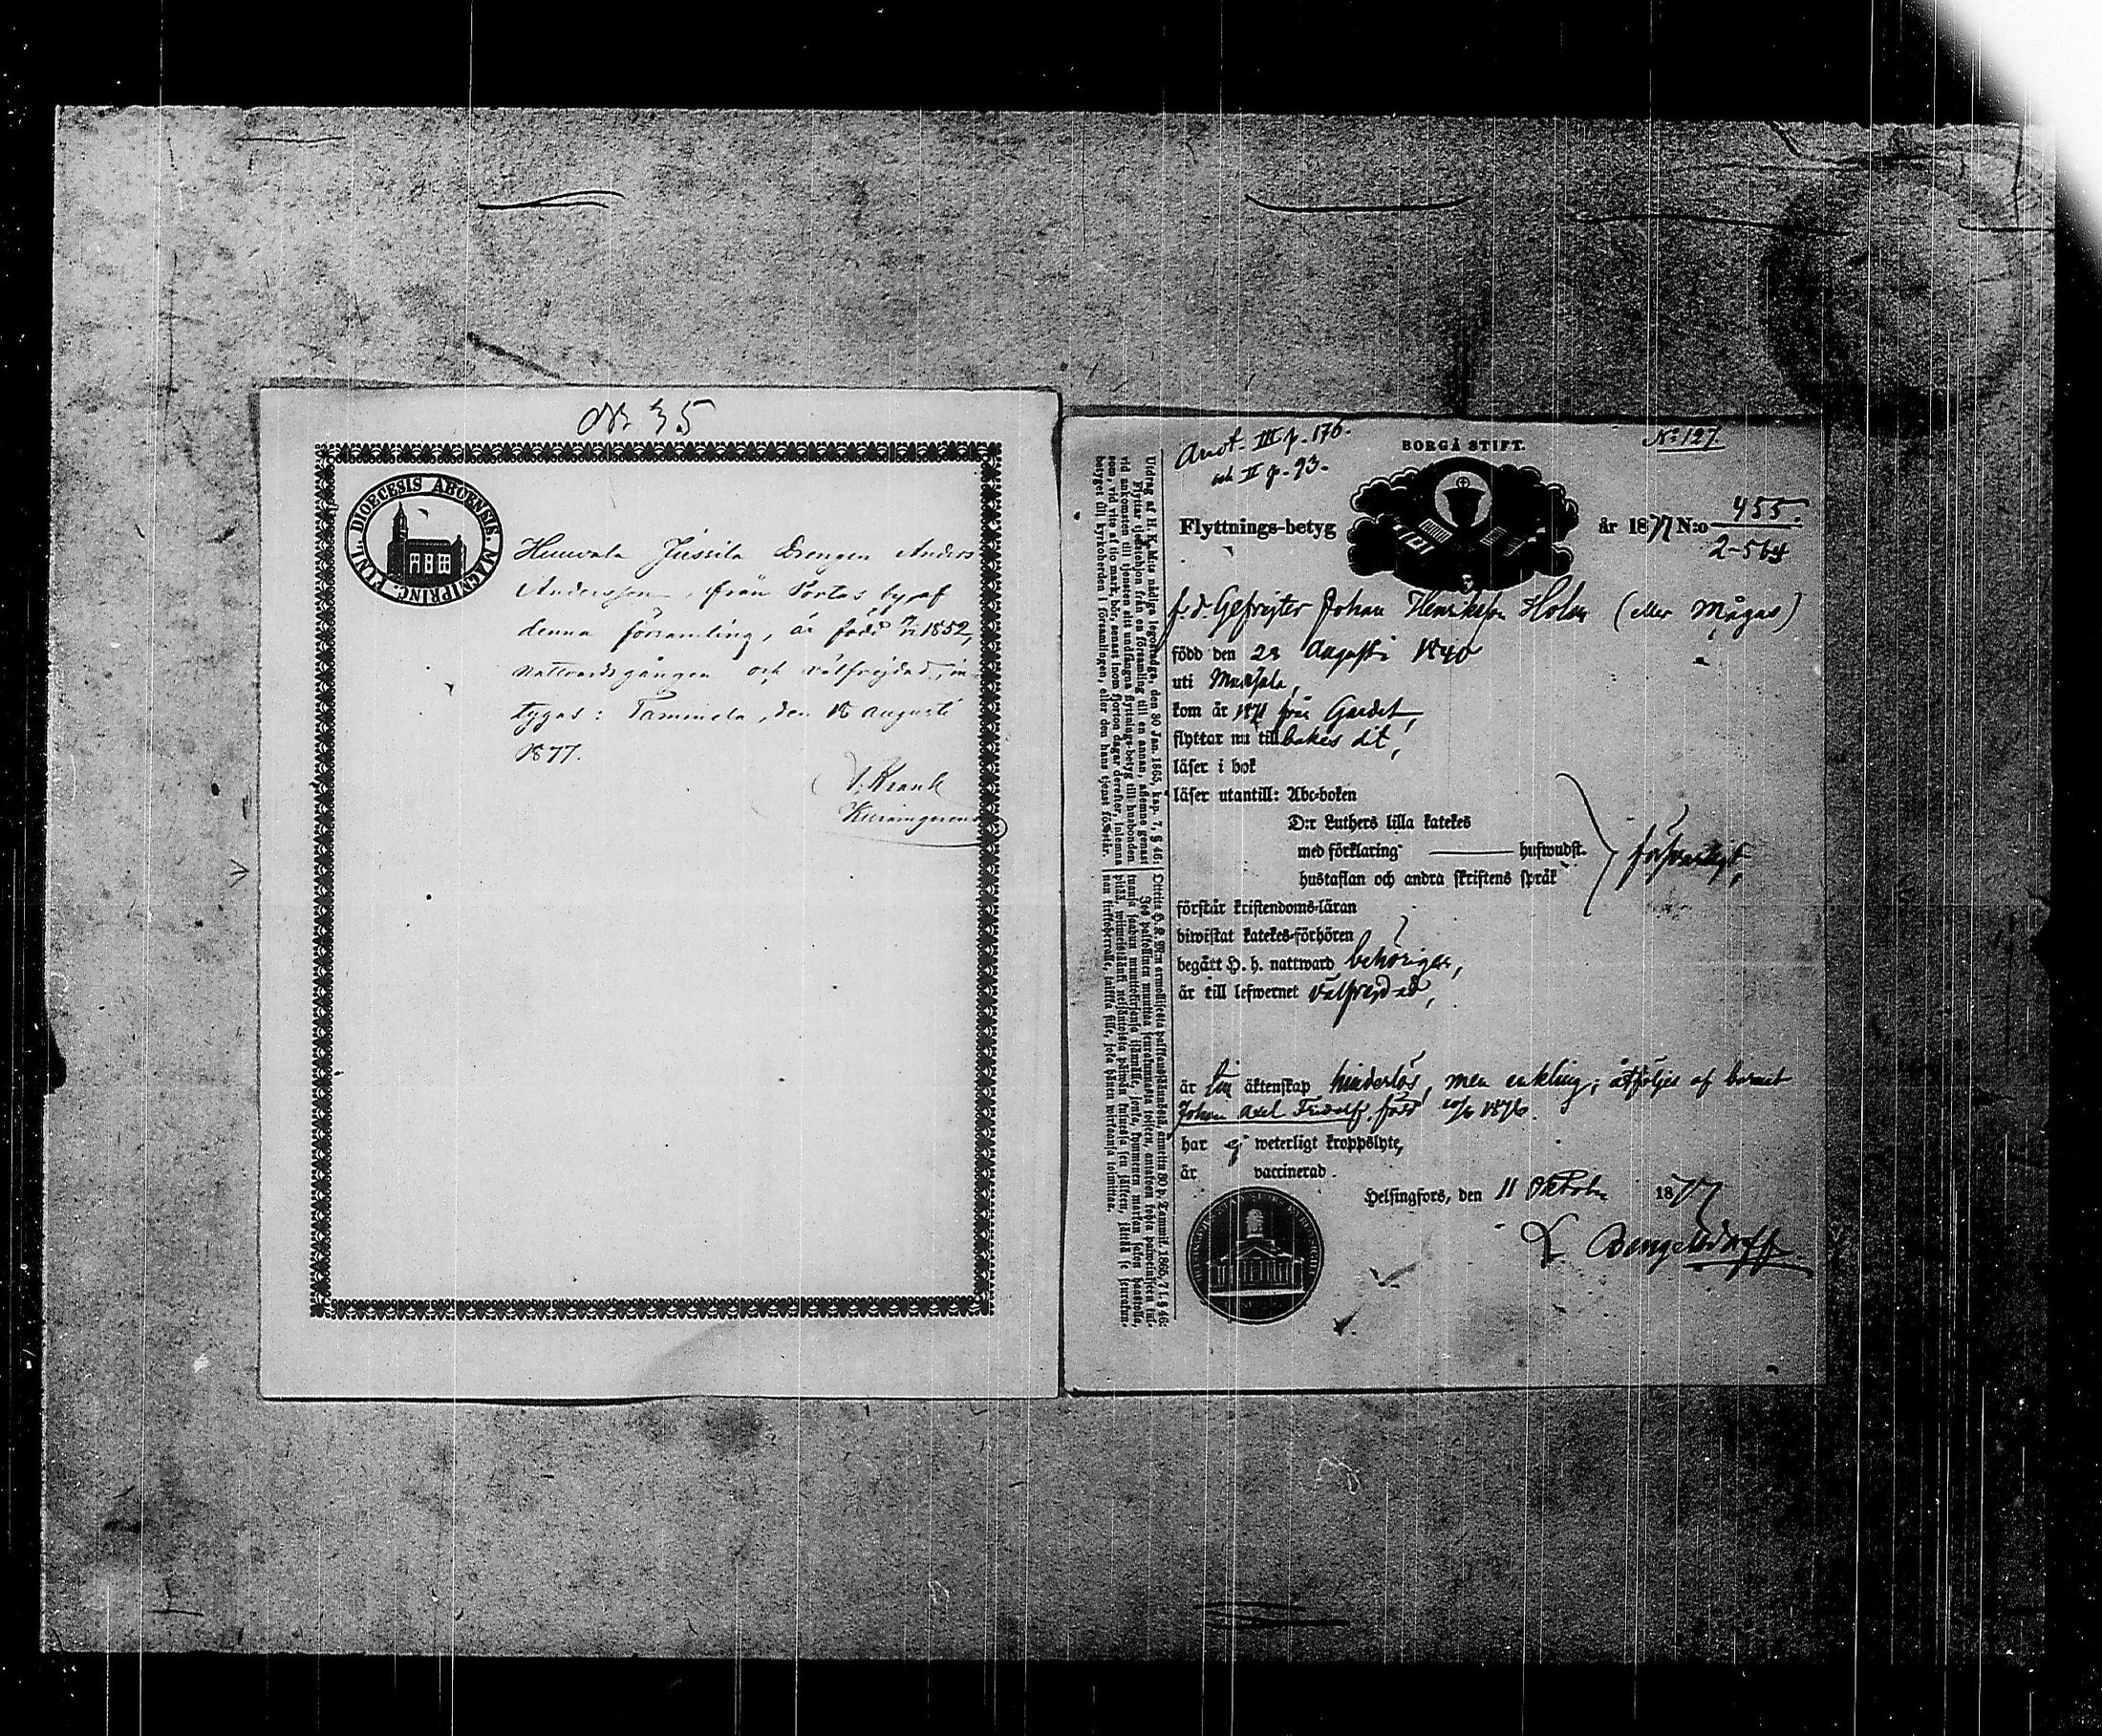 № 35
FINL. DIOECESIS ABOENSIS. MAGNIPRINC.
Huuvola Jussila Drengen Anders
Andersson, från Portas by af
denna församling, är född 1852,
nattvardsgången och välfrejdad, in-
tygas: Tammela, den 18 augusti
1877.
Utdrag af H. K. Maj:ts nådiga legostadga, den 30 Jan. 1865, kap. 7, § 46:
Flyttar tjenstehjon från en församling till en annan, aflemne genast
vid ankomsten till tjensten sitt undfångna flyttnings-betyg till husbonden
som, vid vite af tio mark, bör, senast inom fjorton dagar derefter, inlemna
betyget till kyrkoherden i församlingen, eller den hans tjenst förestår.
Anot. III p. 176.
och II p. 93.
BORGÅ STIFT.
№ 127
Flyttnings-betyg
år 1877 N:o 455.
2-564
f.d. Gefrejter Johan Henriksson Holm (eller Mågas)
född den 23 Augusti 1840
uti Munsala,
kom år 1871 från Gardet,
flyttar nu tillbakes dit,
läser i bok
läser utantill: Abc-boken
D:r Luthers lilla katekes
med förklaring hufwudst.
hustaflan och andra skriftens språk
försvarligt,
förstår kristendoms-läran
biwistat katekes-förhören
begått H. h. nattward behörigen,
är till lefwernet välfrejdad,
är till äktenskap hinderlös, men enkling; åtföljes af barnet
Johan Axel Fridolf, född 1876.
har ej weterligt kroppslyte,
är vaccinerad.
Helsingfors, den 11 Oktober 1877
K. Bengelsdorff